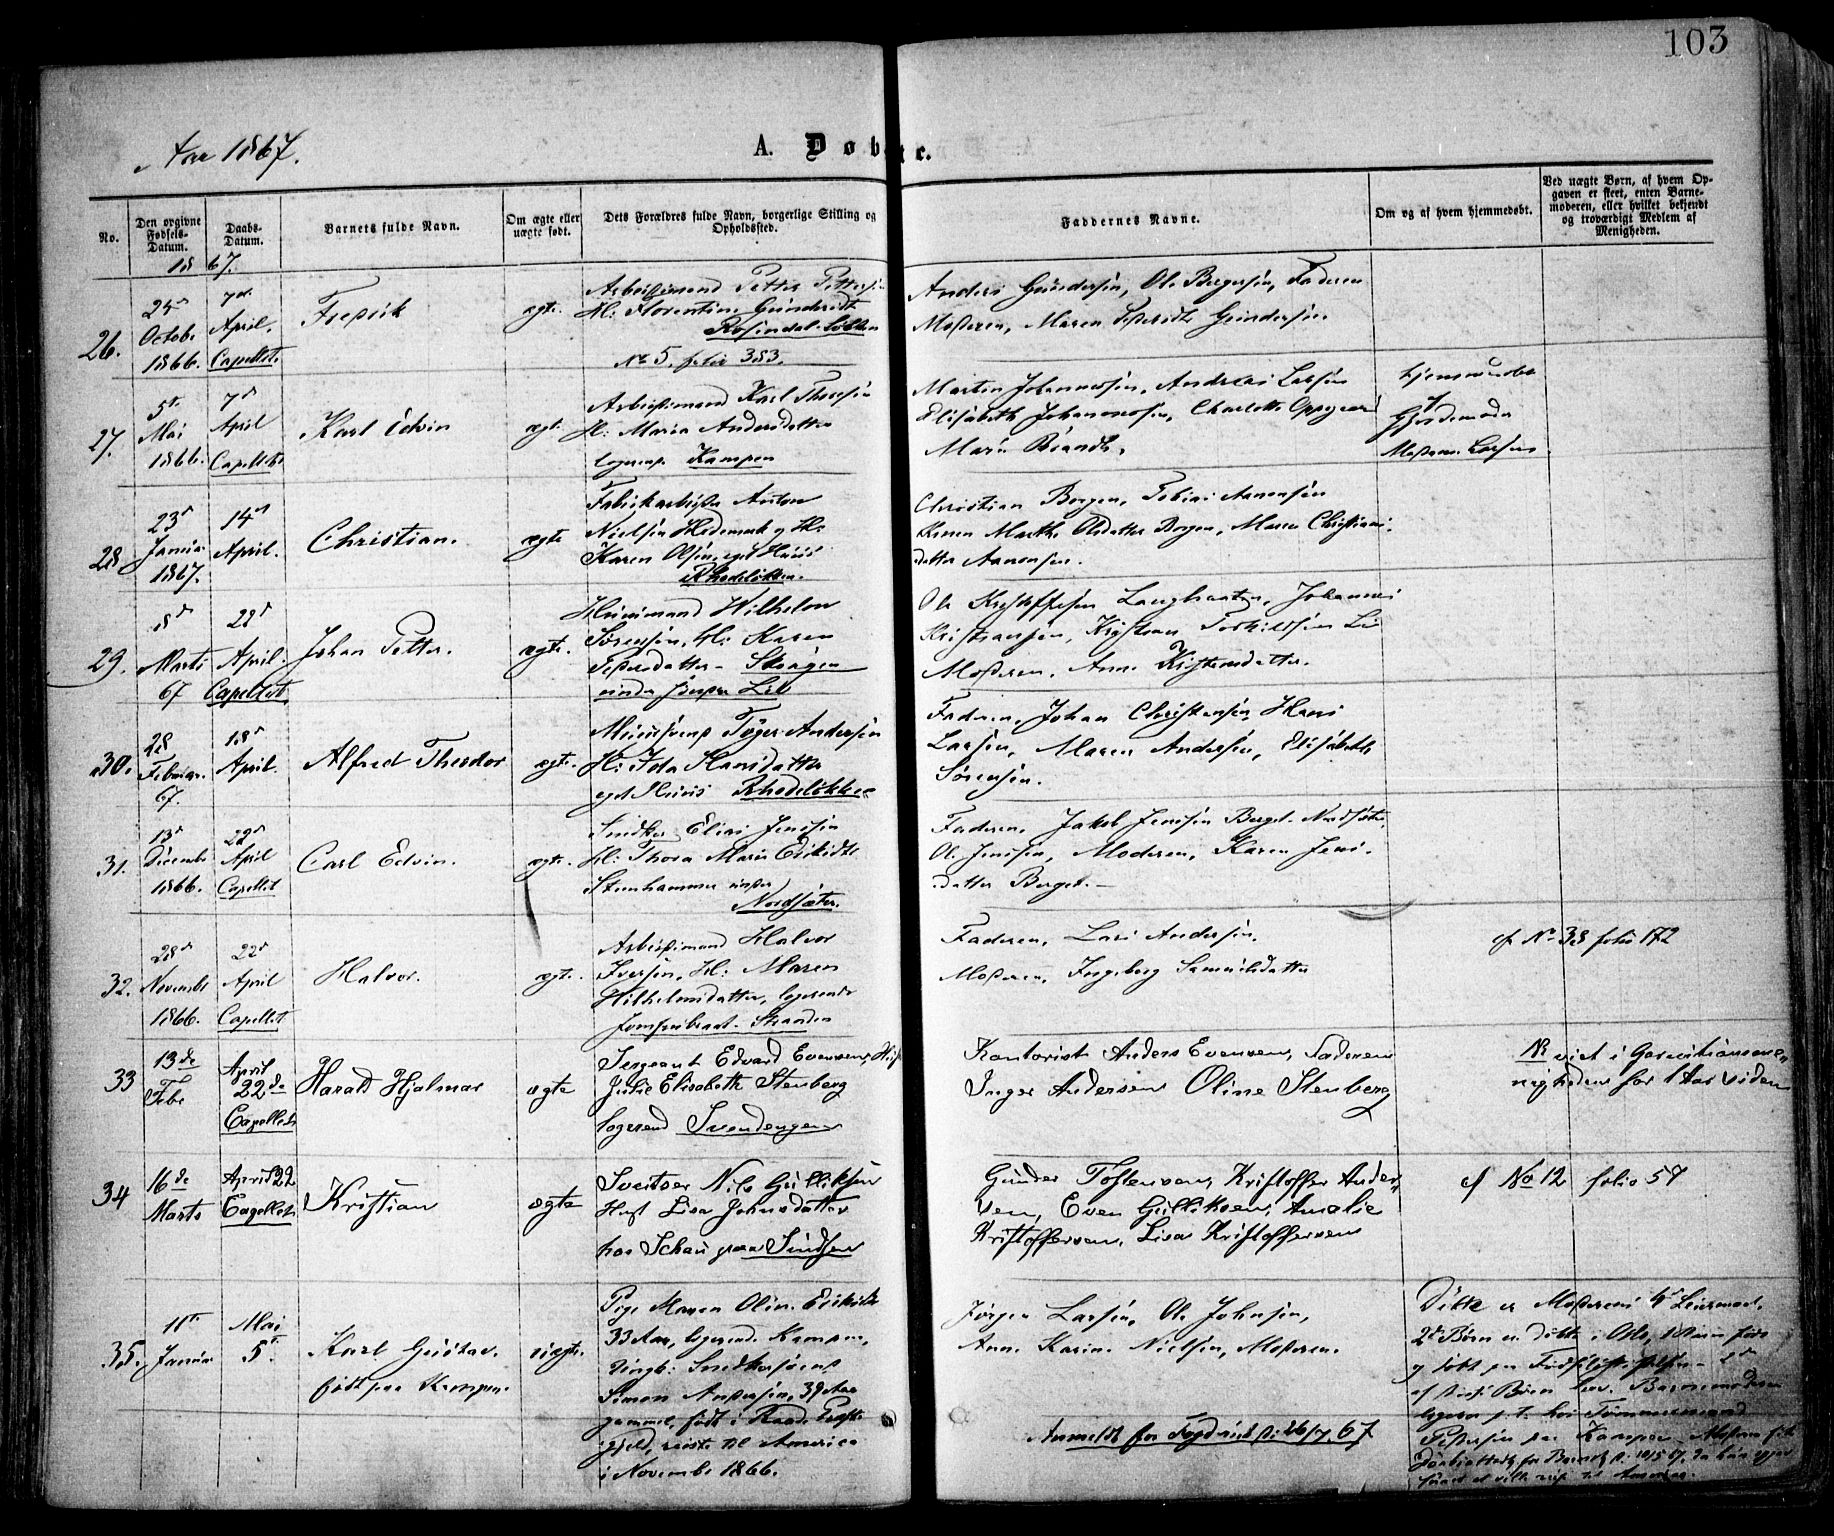 103
Aar 1867.
A. Døbte.
No.
Den opgivne Fødsels-Datum.
Daabs-Datum.
Barnets fulde Navn.
Om ægte eller uægte født.
Dets Forældres fulde Navn, borgerlige Stilling og Opholdsted.
Faddernes Navne.
Om og af hvem hjemmedøbt.
Ved uægte Børn, af hvem Opgaven er skeet, enten Barnemoderen, eller hvilket bekjendt og troværdigt Medlem af Menigheden.
1867.
26.
Octobr
1866.
7de
April.
Capellet.
Fredrik
ægte.
Arbeidsmand Petter Pettersen
H: Florentine Gundersdt
No 5. folio 383.
Anders Gundersen, Ole Bergersen, Faderen
Moderen, Maren Gundersen.
27.
5te
Mai
1866.
7d
April
Capellet.
Karl Edvin
ægte.
Arbeidsmand Karl Thoresen
H: Maria Andersdatter
logerende Kampen
Martin Johannessen, Andreas Larsen
Elisabeth Johannessen, Charlotte Opegaard
Marie Brandt.
Hjemmedøbt
af
Gjordemoder
Larsen
28
23d
Januar
1867.
14d
April.
Christian.
ægte
Fabrikarbeider Anton
Nielsen Hedemark og H:
Karen Olsen, eget Huus
Rhodeløkken.
Christian Borgen, Tobias Aanonsen
Marthe Olsdatter Borgen, Maren Christians
datter Aanonsen.
29.
8d
Marts
67
22d
April.
Capellet.
Johan Petter.
ægte.
Huusmand Wilhelm
Sørensen, H: Karen
Pedersdatter
under
Ole Kristoffersen Langbraaten, Johannes
Kristiansen,
Moderen, Anne Kristensdatter.
30.
28
Februar
67.
18d
April.
Alfred Theodor
ægte.
Muursvend Tøger Andersen
H: Ida Hansdatter
eget Huus Rhodeløkken
Faderen, Johan Christensen, Hans
Larsen, Maren Andersen, Elisabeth
Sørensen.
31.
13d
Decembr
1866.
22d
April
Capellet
Carl Edvin.
ægte.
Snedker Elias Jensen
H: Thora Marie Eriksdt
Steenhammer under
Nordsæter.
Faderen, Jakob Jensen Berget Nordsæter,
Ole Jensen, Moderen, Karen Jens-
datter Berget.
32.
28d
Novembr
1866.
22d
April
Capellet
Halvor.
ægte.
Arbeidsmand Halvor
Iversen, H: Maren
Wilhelmsdatter, logerende
Jomfrubraat. Stranden
Faderen, Lars Andersen.
Moderen, Ingeborg Samuelsdatter
cf No 38 folio 172
33
13de
Febr
April
22de
Capellet
Harald Hjalmar
ægte
Sergeant Edvard Evensen, H:
Julie Elisabeth Stenberg
logerend Svendengen
Kontorist Anders Evensen, Faderen
Inger Andersen Oline Stenberg
NB viet i Garnitionsme-
nigheden for 1 Aar siden
34
16de
Marts
April 22
Capellet
Kristian
ægte
Sveitser Nils Gulliksen
Hust Lisa Johnsdatter
hos Schau paa Sinsen
Gunder Tostensen, Kristoffer Ander-
sen, Even Gulliksen, Amalie
Kristoffersen, Lisa Kristoffersen
cf No 12 folio 57
35.
11te
Januar
Mai
5te
Karl Gustav.
født paa Kampen.
uægte.
Pige Maren Oline Eriksdt
33 Aar, logerende Kampen,
Ungk: Snedkersvend
Simon Andersen, 39 Aar
gammel, født i
gjeld, reiste til America
i Novembr 1866.
Jørgen Larsen, Ole Johnsen,
Anne Karine Nielsen, Moderen.
Anmeldt for Fogd
Dette er Moderens 4de Leiermaal,
2de Børn er døbte i Oslo,
Tømmermand
Pedersen paa Kampen